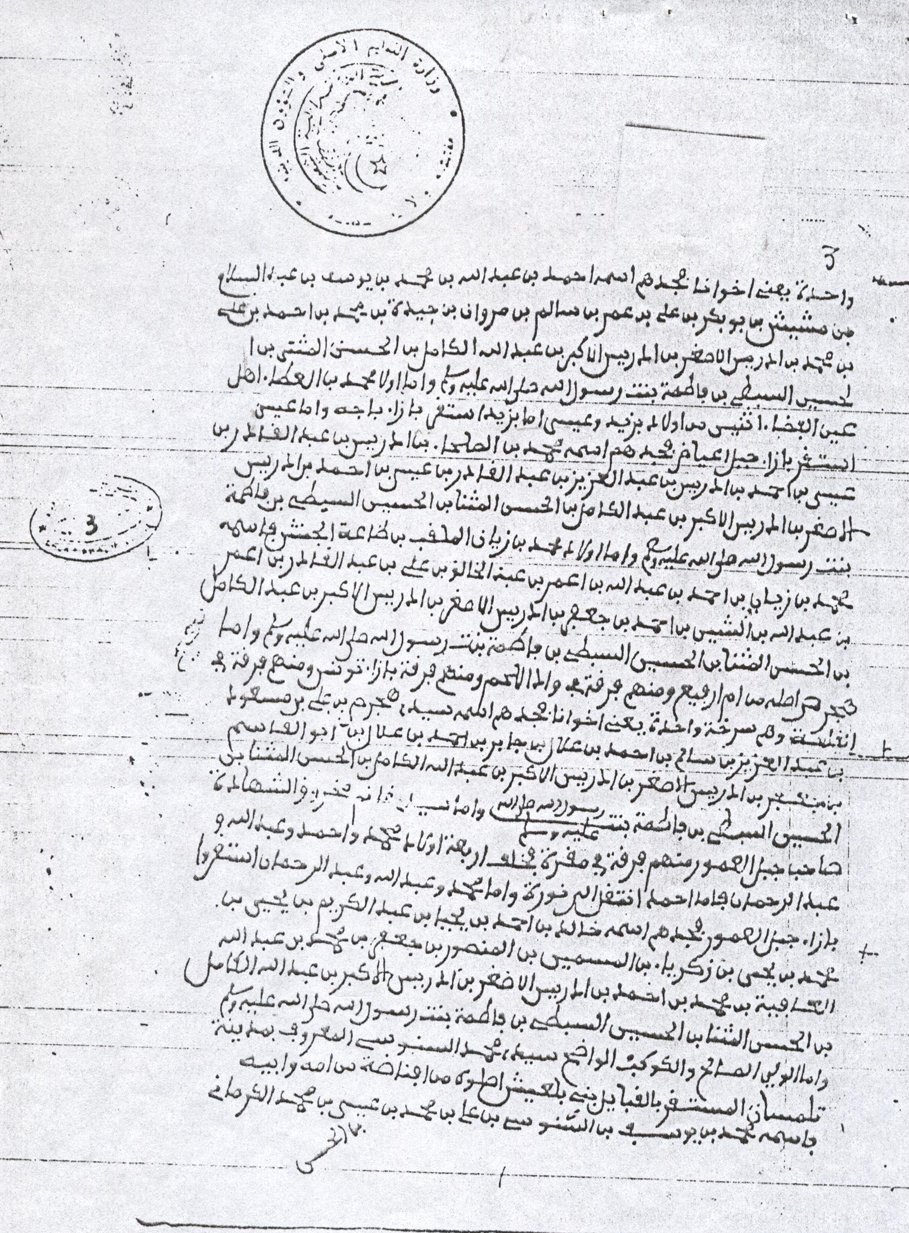 وزارة التعليم الأصلي والشؤون الدينية
3
واحدة يعني اخواننا فجدهم اسمه احمد بن عبد الله بن محمد بن يوسف بن عبد السلام
بن مشيش بن بوبكر بن علي بن عمر بن سالم بن مروان بن حيدة بن محمد بن احمد بن علي
بن محمد بن ادريس الاصغر بن ادريس الاكبر بن عبد الله الكامل بن الحسن المثنى بن ا
لحسين السبطي بن فاطمة بنت رسول الله صلى الله عليه وسلم واما اولاد محمد بن العطاء اهل
عين الفضاء اثنين من اولاد يزيد وعيسى اما يزيد استقر بازاء باجه واما عيسى
استقر بازاء جبل عياض فجدهم اسمه محمد بن الصالحا بن ادريس بن عبد القادر بن
عيسى بن احمد بن ادريس بن عبد العزيز بن عبد القادر بن عيسى بن احمد بن ادريس
الاصغر بن ادريس الاكبر بن عبد الكامل بن الحسن المثنا بن الحسين السبطي بن فاطمة
بنت رسول الله صلى الله عليه وسلم واما اولاد محمد بن زيان الملقب بن طاعة الحنش فاسمه
محمد بن زيان بن احمد بن عبد الله بن اعمر بن عبد الخالق بن علي بن عبد القادر بن اعمر
بن عبد الله بن الشبين بن احمد بن جعفر بن ادريس الاصغر بن ادريس الاكبر بن عبد الكامل
بن الحسن المثنا بن الحسين السبطي بن فاطمة بنت رسول الله صلى الله عليه وسلم واما
من ام ارفيع ومنهم فرقة في واد الاحم ومنهم فرقة بازاء تونس ومنهم فرقة في
وهم سرخة واحدة يعني اخواننا فجدهم اسمه سيدي محرم بن علي بن مسعود
بن عبد العزيز بن صالح بن احمد بن علال بن جابر بن احمد بن علال بن ابو القاسم
بن ادريس الاصغر بن ادريس الاكبر بن عبد الله الكامل بن الحسن المثنا بن
الحسين السبطي بن فاطمة بنت رسول الله صلى الله عليه وسلم واما والشهادة
صاحبا جبل العمور منهم فرقة في مقرة فخلف اربعة اولاد محمد واحمد وعبد الله و
عبد الرحمان فاما احمد انتقل الى واما محمد وعبد الله وعبد الرحمان استقروا
بازاء جبل العمور فجدهم اسمه خالد بن احمد بن يحيا بن عبد الكريم بن يحيى بن
محمد بن يحيى بن زكرياء بن السمين بن المنصور بن جعفر بن محمد بن عبد الله
العافية بن محمد بن احمد بن ادريس الاصغر بن ادريس الاكبر بن عبد الله الكامل
بن الحسن المثنا بن الحسين السبطي بن فاطمة بنت رسول الله صلى الله عليه وسلم
واما الولي الصالح والكوكب الواضح سيدي محمد السنوسي المعروف بمدينة
تلمسان المستقر بالقبايل بني يلعيش اطوه من امه وابيه
فاسمه محمد بن يوسف بن السنوسي بن علي بن محمد بن عيسى بن محمد الكرماني
بن الحسن
3